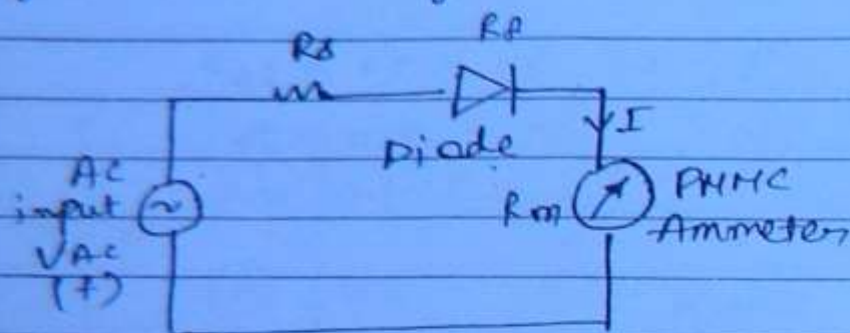 Rs
Rf
Diode
I
AC
input
VAC
(7)
~
Rm
PMMC
Ammeter